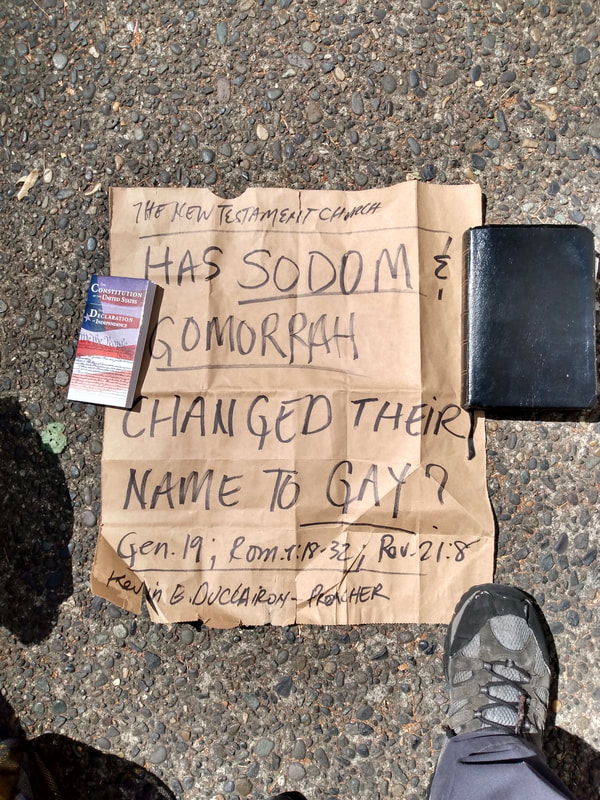 THE NEW TESTAMENT CHURCH
HAS SODOM &
GOMORRAH
CHANGED THEIR
NAME TO GAY?
Gen. 19; Rom. 1:18-32; Rev. 21:8
Kevin E. DUCLAIRON - PREACHER
THE
CONSTITUTION
OF THE UNITED STATES
DECLARATION
OF INDEPENDENCE
We the People